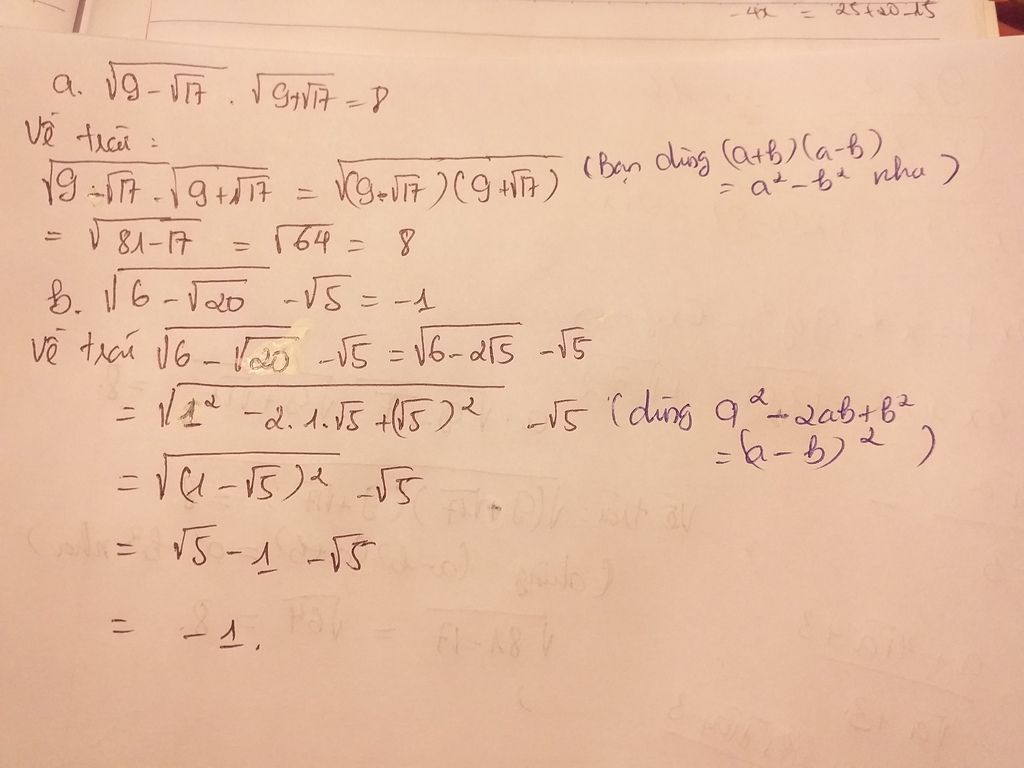 -4x = 25+20-15
a. √(9-√17) . √(9+√17) = 8
Vế trái :
√(9-√17) . √(9+√17) = √((9-√17)(9+√17)) (Bạn dùng (a+b)(a-b)
= a² - b² nha)
= √(81-17) = √64 = 8
b. √(6-√20) - √5 = -1
Vế trái √(6-√20) - √5 = √(6-2√5) - √5
= √(1² - 2.1.√5 + (√5)²) - √5 (dùng a² - 2ab + b²
= (a-b)²)
= √((1-√5)²) - √5
= √5 - 1 - √5
= -1.